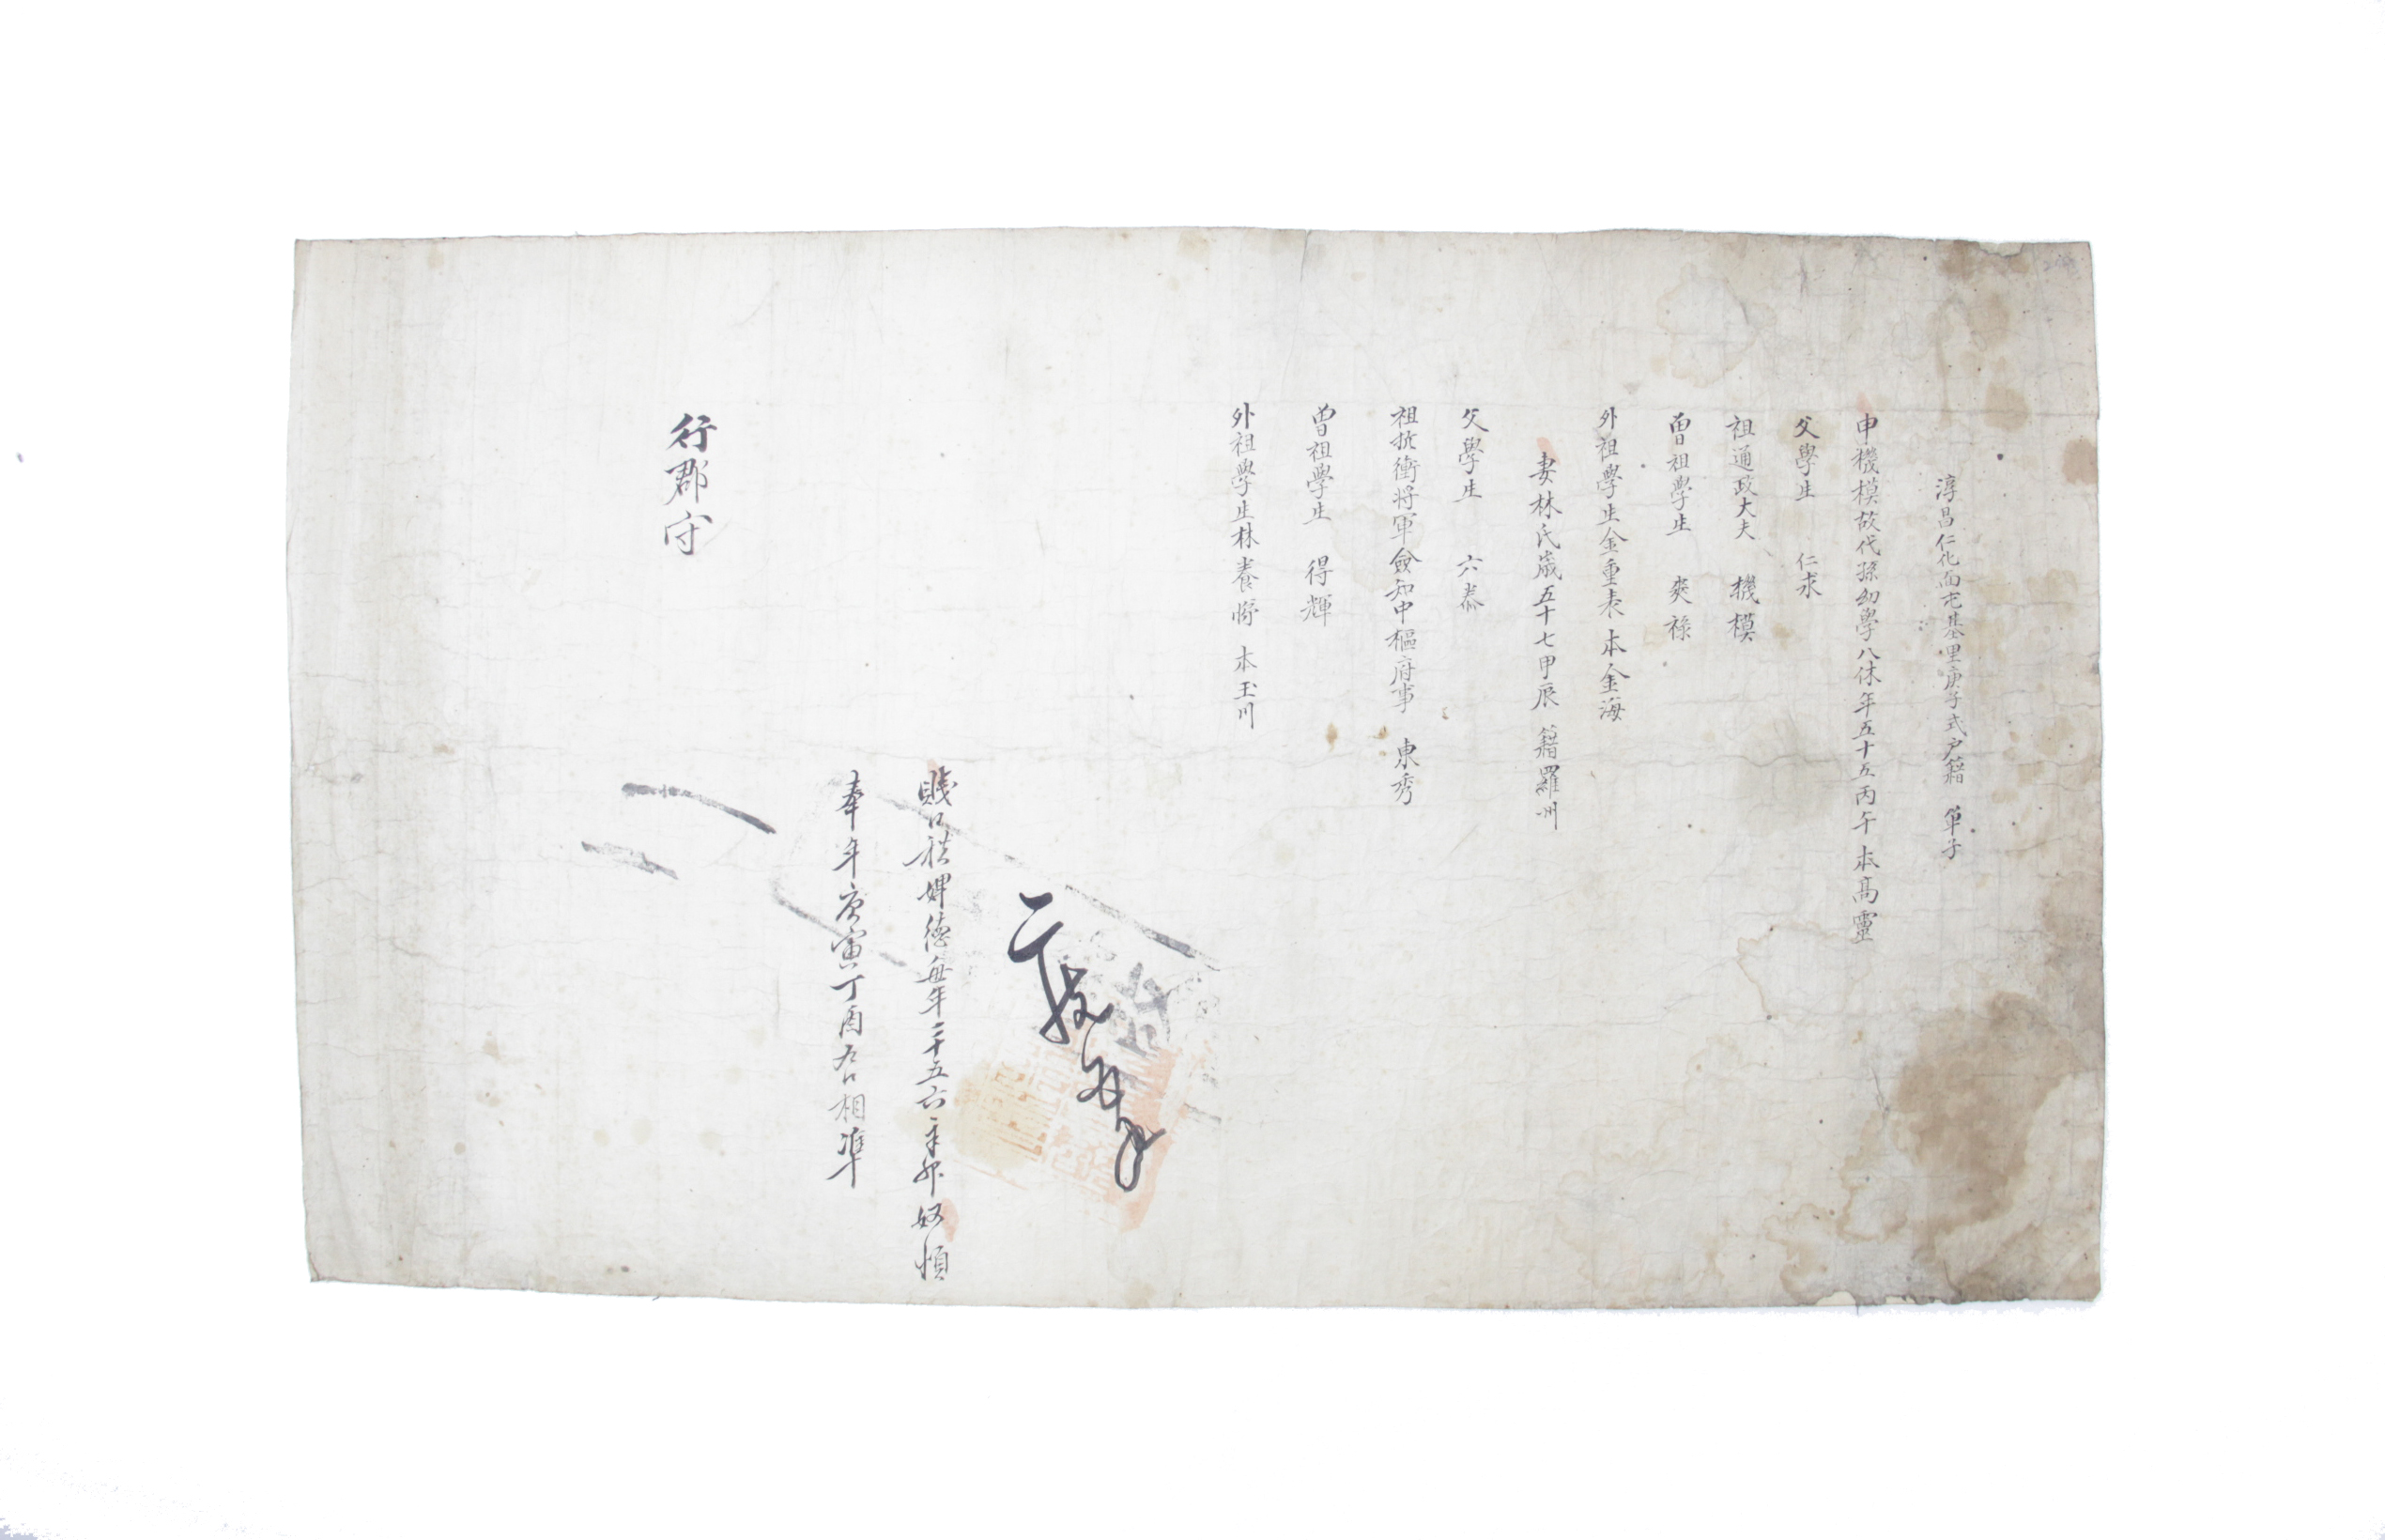 淳昌仁化面屯基里庚子式户籍 單子
申機模故代孫幼學八休年五十五丙午 本高靈
父學生 仁求
祖通政大夫 機模
曽祖學生 奭祿
外祖學生金重表 本金海
妻林氏歲五十七甲辰 籍羅州
父學生 六泰
祖抗衝将軍僉知中樞府事 東秀
曽祖學生 得輝
外祖學生林養 本玉川
賤口秩婢德每年三十五六辛卯奴順
奉年庚寅丁酉戶口相準
行郡守